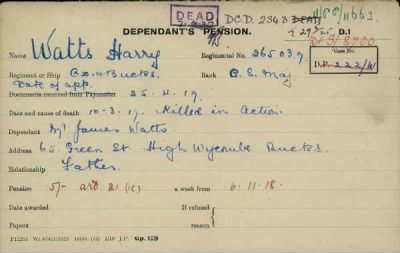 DEAD DCD. 2343 DEAD
DEPENDANT'S PENSION. D.1
Name Watts Harry Regimental No. 265039
Regiment or Ship Ox & Bucks. Rank C.S. Maj Case No.
Date of app. D.P. 222/W
Documents received from Paymaster 25.4.19
Date and cause of death 10-3-17. Killed in Action.
Dependant Mr James Watts.
Address 65. Green St. High Wycombe Bucks.
Relationship Father.
Pension 5/- art 21 (1c) a week from 6.11.18.
Date awarded If refused
Papers reason
Gp. 159